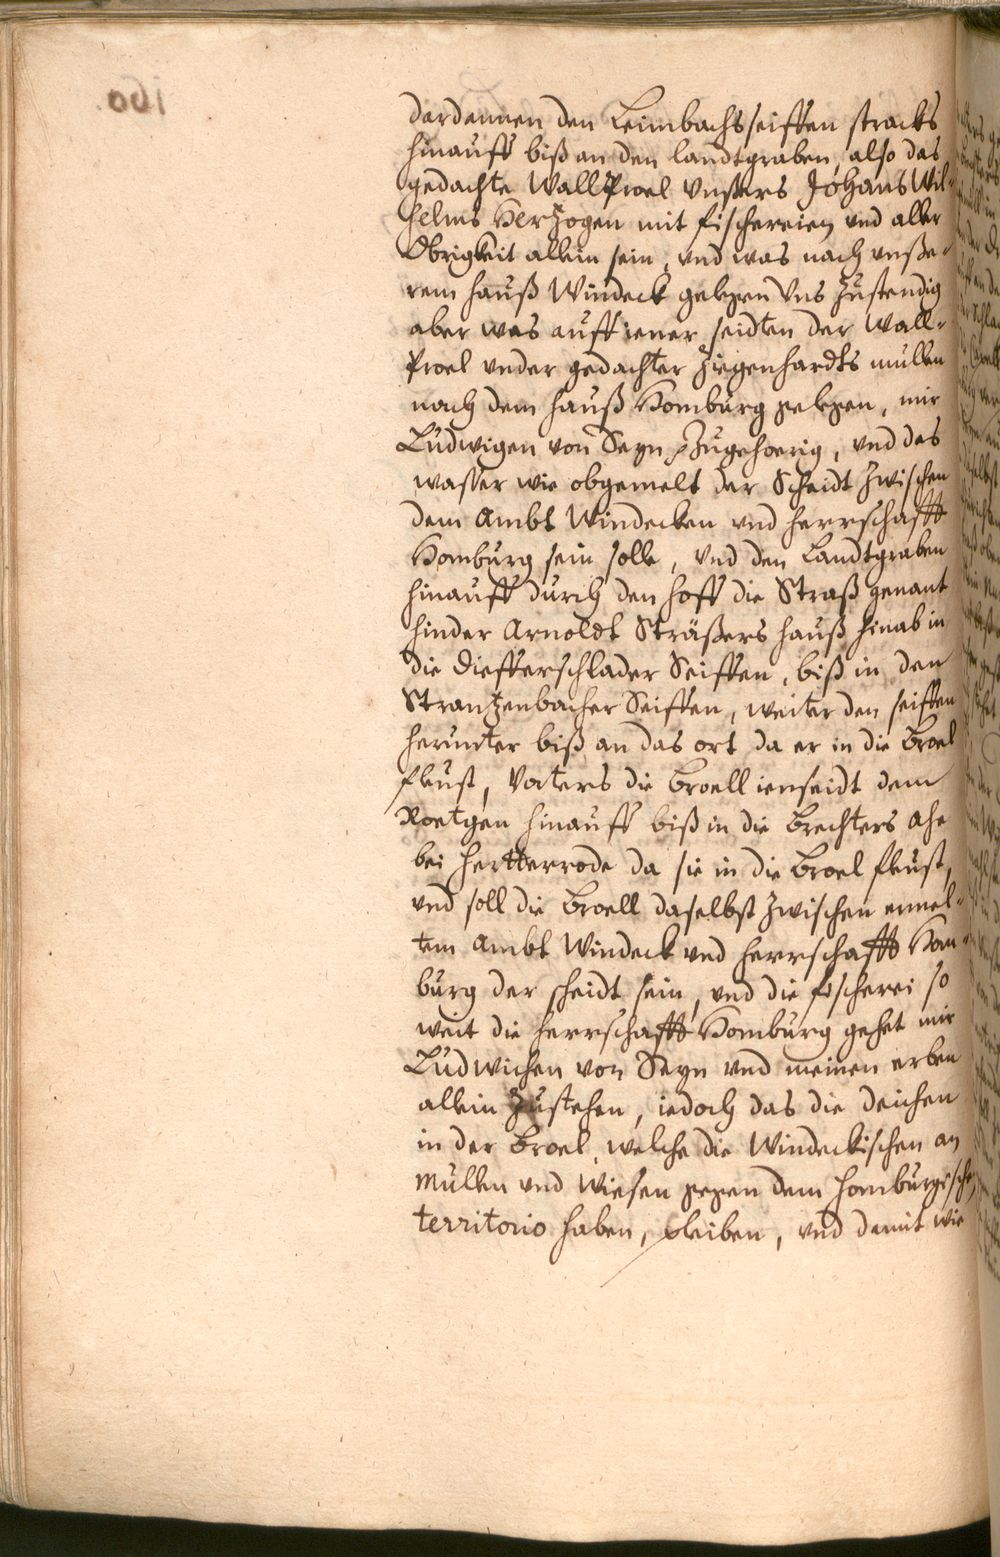 dardannen den Leimbachsseiffen stracks
hinauff biß an den landtgraben, also das
gedachte Wallproel Unsers Johans Wil-
helms Hertzogen mit fischereien und aller
Obrigkeit allein sein, und was nach unße-
rem hauß Windeck gelegen Uns zustendig
aber was auff iener seidten der Wall-
proel under gedachter Ziegenhardts mullen
nach dem hauß Homburg gelegen, mir
Ludwigen von Seyn zugehoerig, und das
wasser wie obgemelt der Scheidt zwischen
dem Ambt Windecken und herrschafft
Homburg sein solle, und den Landtgraben
hinauff durch den hoff die Straß genant
hinder Arnoldt Sträßers hauß hinab in
die diefferschlader Seiffen, biß in den
Strantzenbacher Seiffen, weiter den seiffen
herunter biß an das ort da er in die Broel
fleust, Vorters die Broell ienseidt dem
Roetgen hinauff biß in die Brechters ahe
bei Hertterrode da sie in die Broel fleust,
und soll die Broell daselbst zwischen ermel-
tem Ambt Windeck und herrschafft Hom-
burg der scheidt sein, und die fischerei so
weit die herrschafft Homburg gehet mir
Ludwichen von Seyn und meinen erben
allein zustehen, iedoch das die deichen
in der Broel, welche die Windeckischen an
Mullen und Wiesen gegen dem homburgische
territorio haben, pleiben, und damit wie